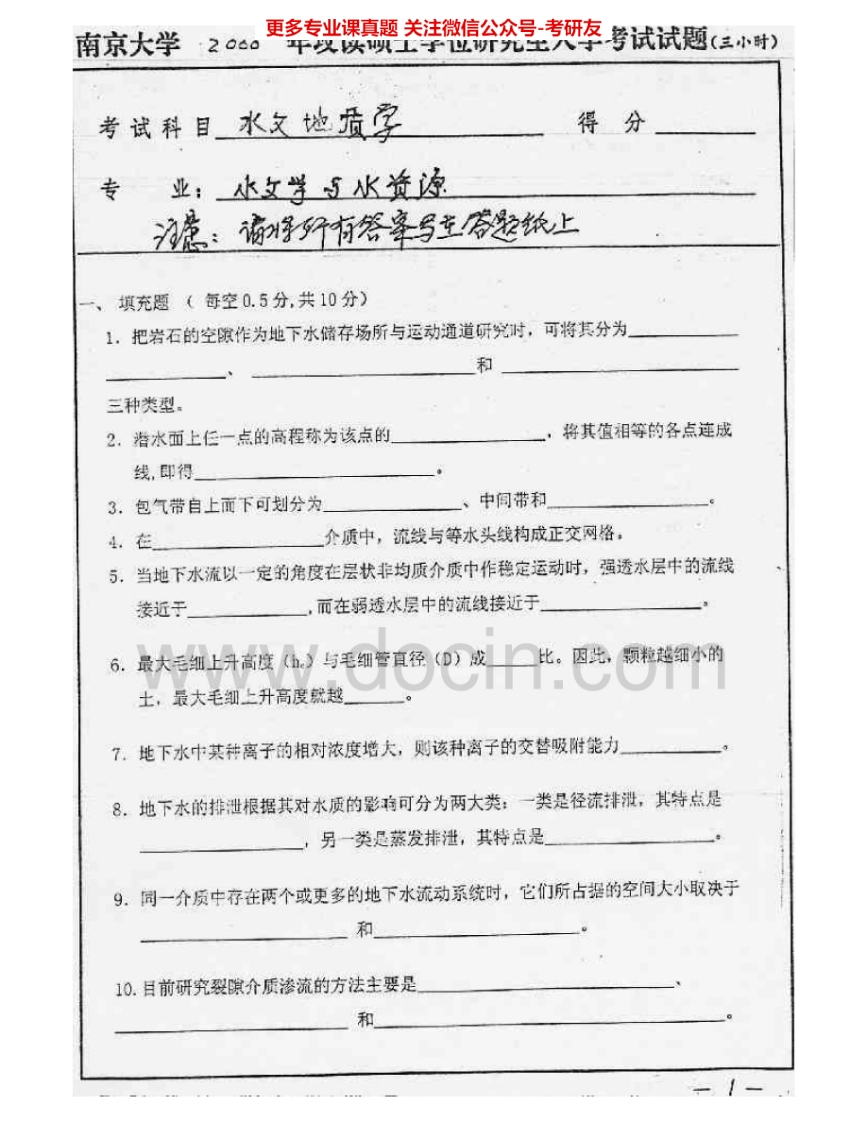 更多专业课真题 关注微信公众号-考研友
南京大学 2000 年攻读硕士学位研究生入学考试试题(三小时)
考试科目 水文地质学 得 分
专 业: 水文学与水资源
注意: 请将所有答案写在答题纸上
一、 填充题 ( 每空0.5分,共10分)
1. 把岩石的空隙作为地下水储存场所与运动通道研究时,可将其分为____
____、 ____和____
三种类型。
2. 潜水面上任一点的高程称为该点的____,将其值相等的各点连成
线,即得____。
3. 包气带自上而下可划分为____、中间带和____。
4. 在____介质中,流线与等水头线构成正交网格。
5. 当地下水流以一定的角度在层状非均质介质中作稳定运动时,强透水层中的流线
接近于____,而在弱透水层中的流线接近于____。
www.docin.com
6. 最大毛细上升高度(hc)与毛细管直径(D)成____比。因此,颗粒越细小的
土,最大毛细上升高度就越____。
7. 地下水中某种离子的相对浓度增大,则该种离子的交替吸附能力____。
8. 地下水的排泄根据其对水质的影响可分为两大类:一类是径流排泄,其特点是
____,另一类是蒸发排泄,其特点是____。
9. 同一介质中存在两个或更多的地下水流动系统时,它们所占据的空间大小取决于
____ 和____。
10.目前研究裂隙介质渗流的方法主要是____、
____ 和____。
-1-